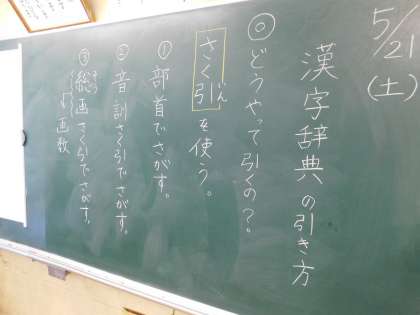 5/21
(土)
漢字辞典の引き方
◎どうやって引くの?
さく引を使う。
いん
①部首でさがす。
②音訓さく引でさがす。
③総画さく引でさがす。
そう
画数